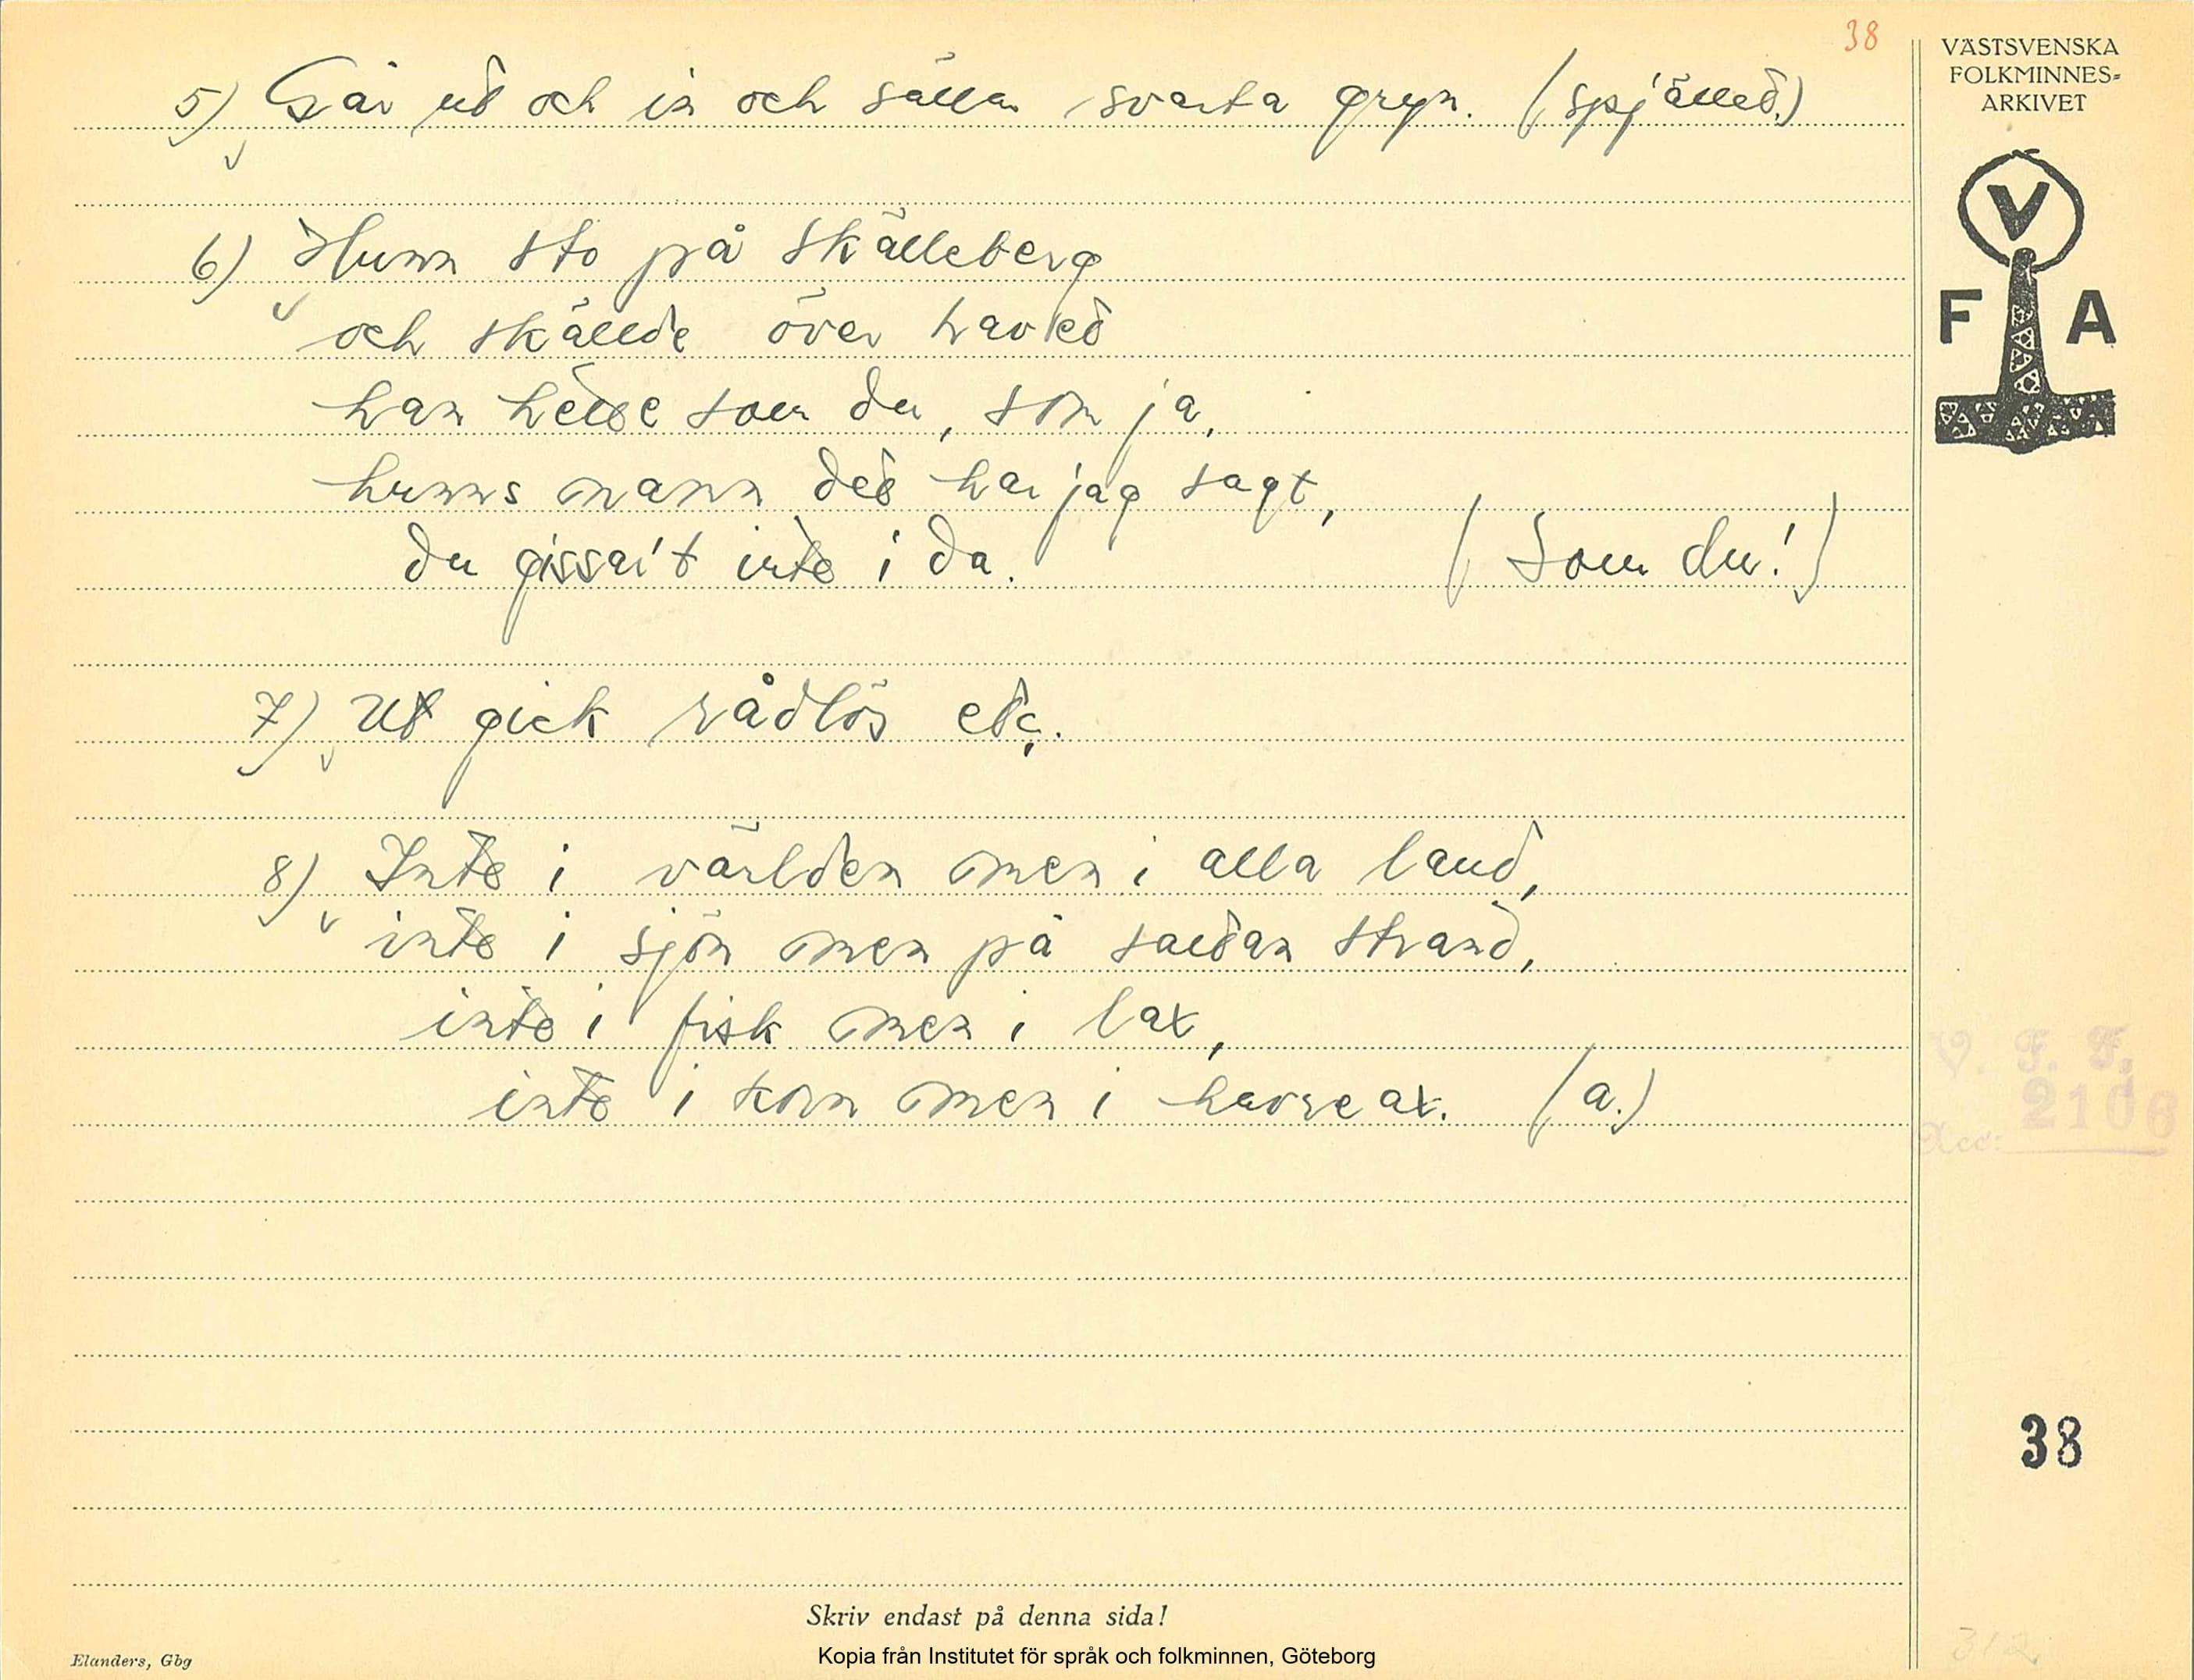 38
VÄSTSVENSKA
FOLKMINNES-
ARKIVET
V
F A
5) Går ut och in och sållar svarta gryn. (spjället.)
6) Hunn sto på skälleberg
och skällde över havet
han hette som du, som ja,
hunns mann det har jag sagt,
du gissa't inte i da. (Som du!)
7) Ut gick rådlös etc.
8) Inte i världen men i alla land,
inte i sjön men på saltan strand,
inte i fisk men i lax,
inte i korn men i havreax. (a.)
V. F. F.
Acc: 2106
38
312
Skriv endast på denna sida!
Elanders, Gbg
Kopia från Institutet för språk och folkminnen, Göteborg